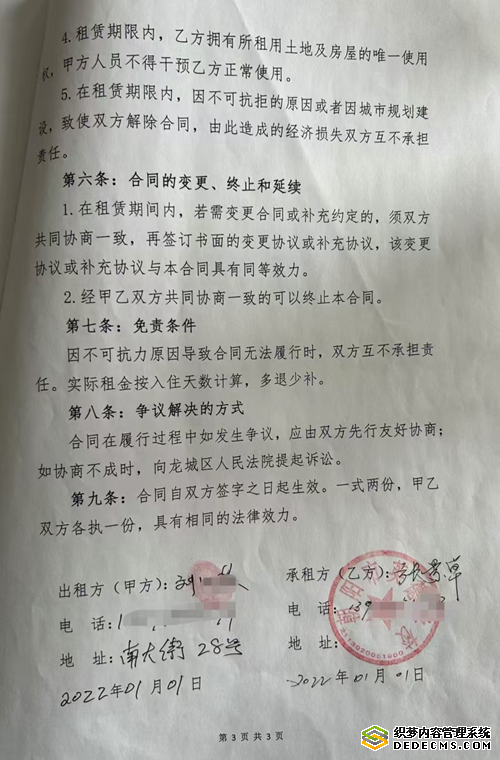 4.租赁期限内，乙方拥有所租用土地及房屋的唯一使用
权，甲方人员不得干预乙方正常使用。
5.在租赁期限内，因不可抗拒的原因或者因城市规划建
设，致使双方解除合同，由此造成的经济损失双方互不承担
责任。
第六条：合同的变更、终止和延续
1.在租赁期间内，若需变更合同或补充约定的，须双方
共同协商一致，再签订书面的变更协议或补充协议，该变更
协议或补充协议与本合同具有同等效力。
2.经甲乙双方共同协商一致的可以终止本合同。
第七条：免责条件
因不可抗力原因导致合同无法履行时，双方互不承担责
任。实际租金按入住天数计算，多退少补。
第八条：争议解决的方式
合同在履行过程中如发生争议，应由双方先行友好协商；
如协商不成时，向龙城区人民法院提起诉讼。
第九条：合同自双方签字之日起生效。一式两份，甲乙
双方各执一份，具有相同的法律效力。
出租方（甲方）：
电 话：
地 址：南大街28号
2022年01月01日
承租方（乙方）：
电 话：139
地 址：
2022年01月01日
朝阳市
第3页共3页
织梦内容管理系统
DEDECMS.COM